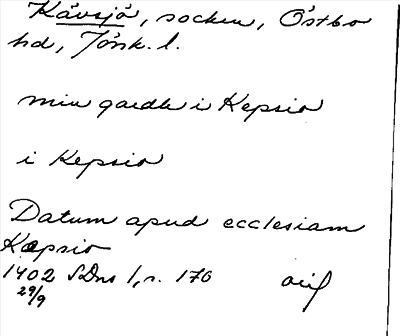 Kävsjö, socken, Östbo
hd, Jönk. l.
min gardh i Kepsio
i Kepsio
Datum apud ecclesiam
Kæpsio
1402 SDns 1, s. 176
29/9